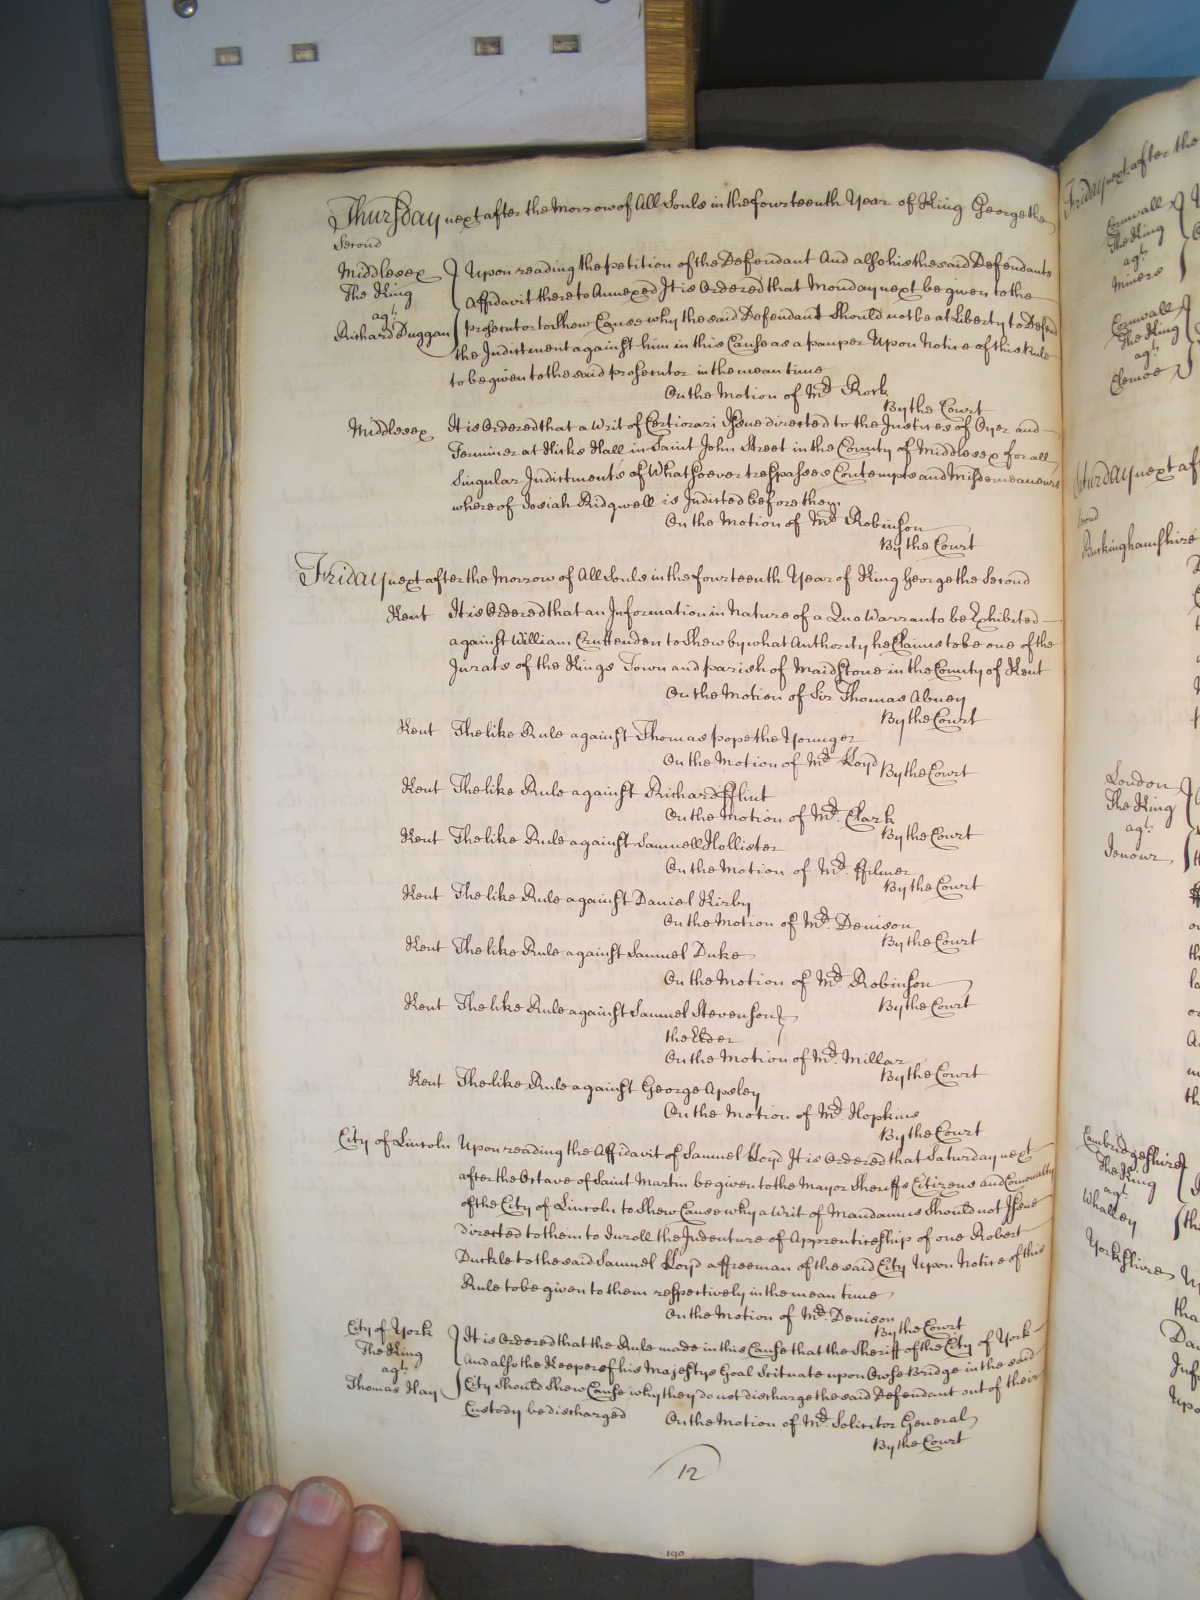 Thursday next after the Morrow of All Souls in the fourteenth Year of King George the
Second
Middlesex
The King
agt.
Richard Duggan
Upon reading the petition of the Defendant And also his the said Defendants
Affidavit thereto Annexed It is Ordered that Monday next be given to the
prosecutor to Shew Cause why the said Defendant Should not be at Liberty to Defend
the Indictment against him in this Cause as a pauper Upon Notice of this Rule
to be given to the said prosecutor in the mean time
On the Motion of Mr. Rock
By the Court
Middlesex It is Ordered that a Writ of Certiorari Issue directed to the Justices of Oyer and
Terminer at Hicks Hall in Saint John Street in the County of Middlesex for all
Singular Indictments of Whatsoever trespasses Contempts and Misdemeanours
whereof Josiah Ridgwell is Indicted before them
On the Motion of Mr. Robinson
By the Court
Friday next after the Morrow of All Souls in the fourteenth Year of King George the Second
Kent It is Ordered that an Information in Nature of a Quo Warranto be Exhibited
against William Cruttenden to Shew by what Authority he Claims to be one of the
Jurats of the Kings Town and parish of Maidstone in the County of Kent
On the Motion of Sir Thomas Abney
By the Court
Kent The like Rule against Thomas pope the Younger
On the Motion of Mr. Lloyd
By the Court
Kent The like Rule against Richard fflint
On the Motion of Mr. Clark
By the Court
Kent The like Rule against Samuell Hollister
On the Motion of Mr. ffilmer
By the Court
Kent The like Rule against Daniel Kirby
On the Motion of Mr. Denison
By the Court
Kent The like Rule against Samuel Duke
On the Motion of Mr. Robinson
By the Court
Kent The like Rule against Samuel Stevenson
the Elder
On the Motion of Mr. Millar
By the Court
Kent The like Rule against George Apsley
On the Motion of Mr. Hopkins
By the Court
City of Lincoln Upon reading the Affidavit of Samuel Lloyd It is Ordered that Saturday next
after the Octave of Saint Martin be given to the Mayor Sheriffs Citizens and Comonalty
of the City of Lincoln to Shew Cause why a Writ of Mandamus Should not Issue
directed to them to Inroll the Indenture of Apprenticeship of one Robert
Duckle to the said Samuel Lloyd a ffreeman of the said City Upon Notice of this
Rule to be given to them respectively in the mean time
On the Motion of Mr. Denison
By the Court
City of York
The King
agt.
Thomas Hay
It is Ordered that the Rule made in this Cause that the Sheriff of the City of York
And also the Keeper of his Majestys Goal Scituate upon Owse Bridge in the said
City Should Shew Cause why they do not discharge the said Defendant out of their
Custody be discharged
On the Motion of Mr. Solicitor General
By the Court
12
190
Friday next after the
Cornwall
The King
agt.
Miners
Cornwall
The King
agt.
Clemoe
Saturday next aft
Second
Buckinghamshire
London
The King
agt.
Denour
Cambridgeshire
The King
agt.
Whalley
Yorkshire